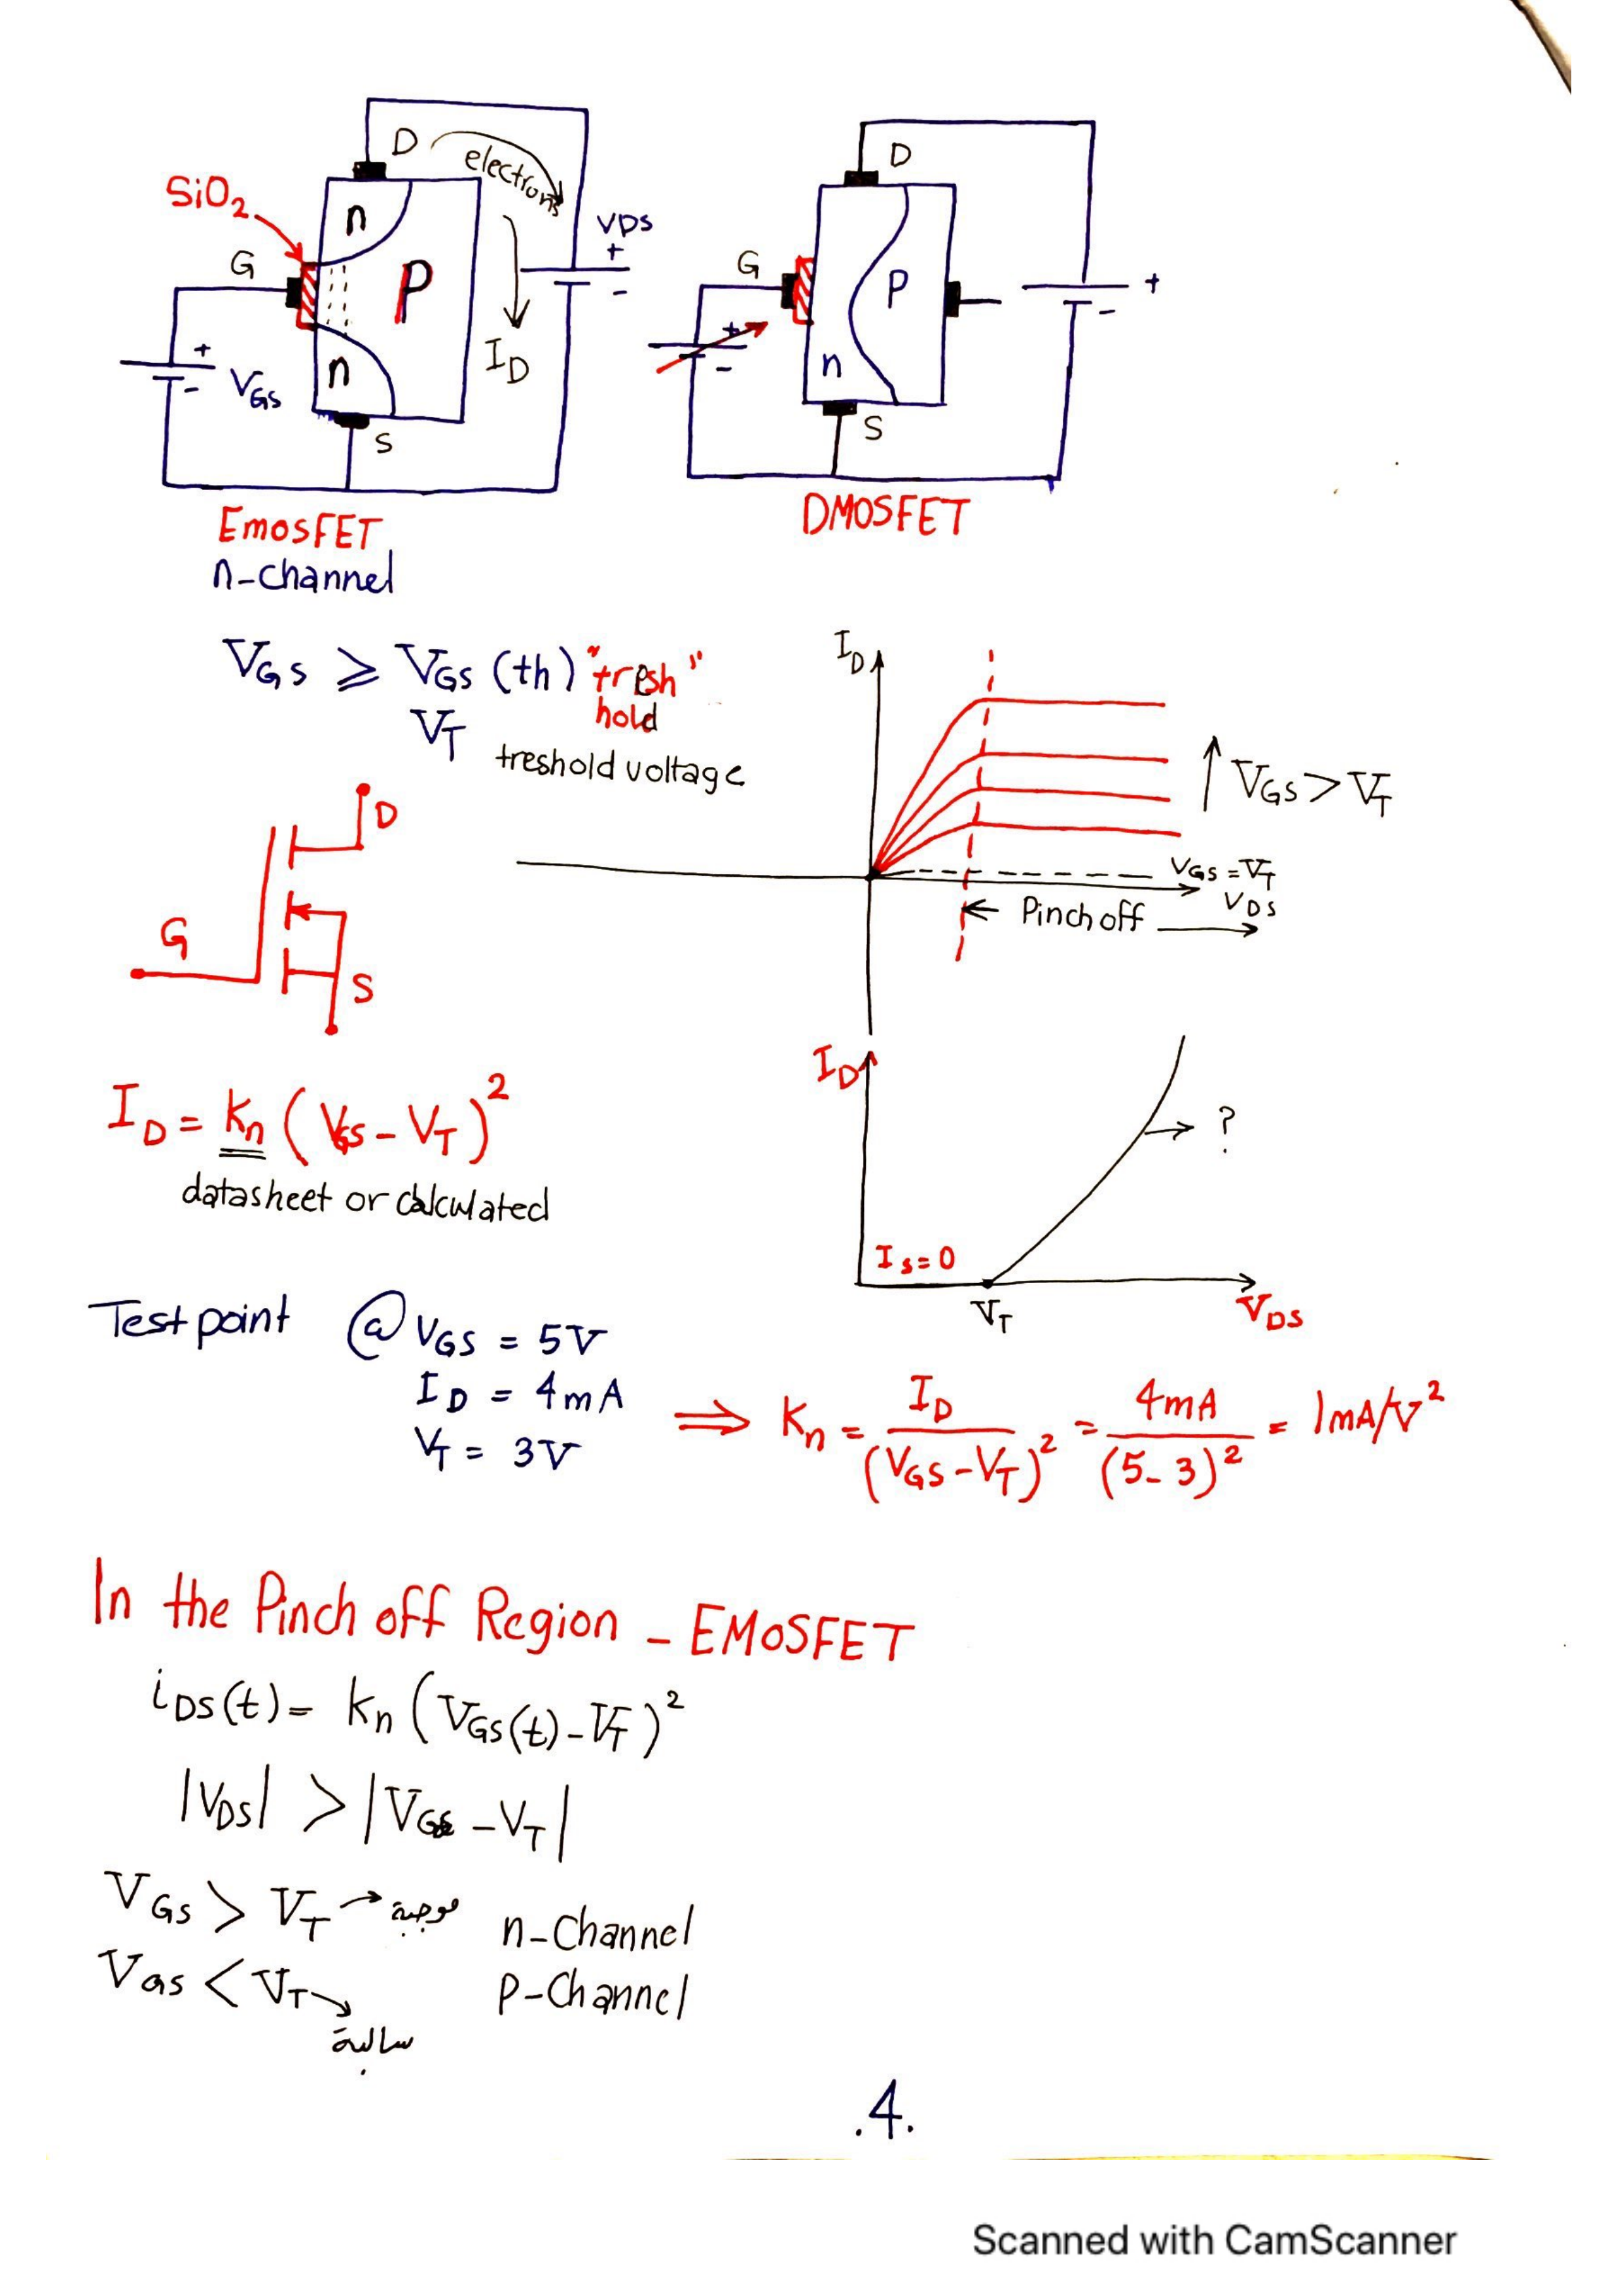 D
electrons
SiO2
n
G
P
VDS
+
-
ID
+
-
VGS
n
S
EmosFET
n-channel
D
G
P
+
-
+
-
n
S
DMOSFET
VGS ≥ VGS (th) "tresh"
hold
VT
treshold voltage
D
G
S
ID
VGS > VT
VGS = VT
VDS
Pinch off
ID = kn (VGS - VT)²
datasheet or calculated
ID
?
IS = 0
VT
VDS
Test point @ VGS = 5V
ID = 4mA
VT = 3V
⇒ Kn = ID / (VGS - VT)² = 4mA / (5 - 3)² = 1mA/V²
In the Pinch off Region - EMOSFET
iDS(t) = kn (VGS(t) - VT)²
|VDS| > |VGS - VT|
VGS > VT → موجبة n-Channel
VGS < VT → سالبة P-Channel
.4.
Scanned with CamScanner